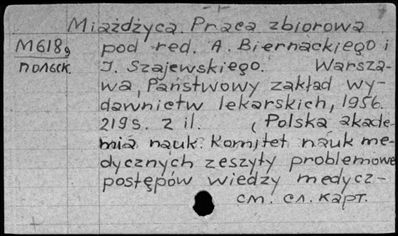 Miażdżyca. Praca zbiorowa
М618g
польск.
pod red. A. Biernackiego i
J. Szajewskiego. Warsza-
wa, Państwowy zakład wy-
dawnictw lekarskich, 1956.
219s. z il. (Polska akade-
mia nauk. Komitet nauk me-
dycznych zeszyty problemowe
postępów wiedzy medycz-
см. сл. карт.